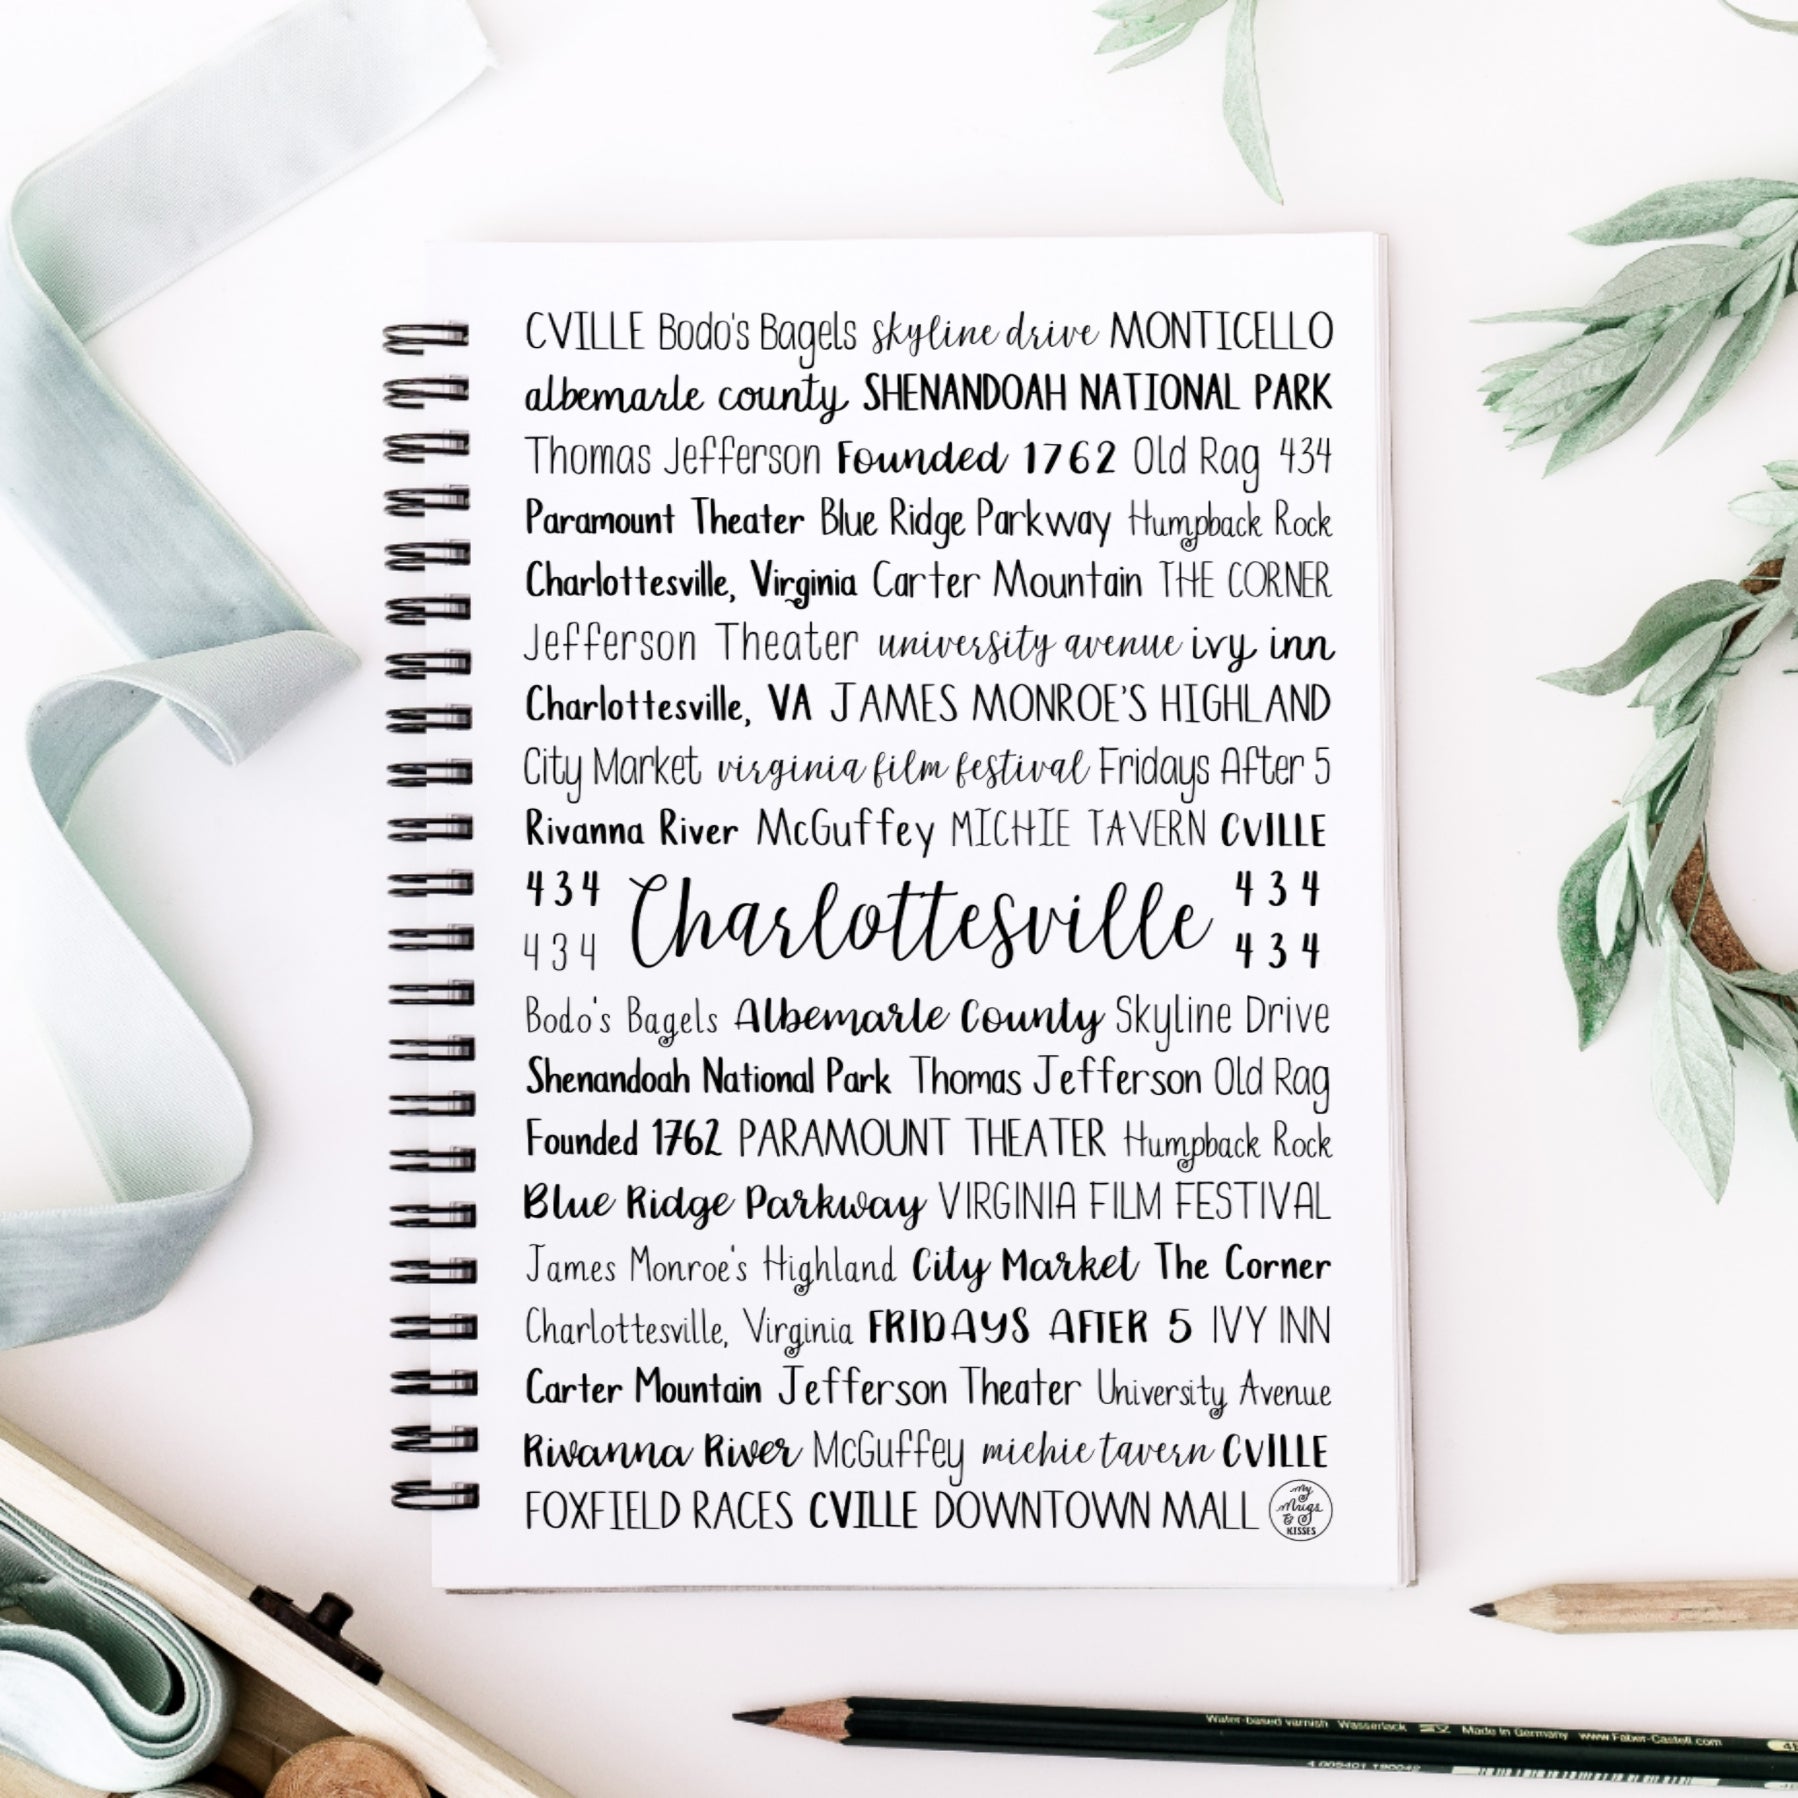 CVILLE Bodo's Bagels skyline drive MONTICELLO
albemarle county SHENANDOAH NATIONAL PARK
Thomas Jefferson Founded 1762 Old Rag 434
Paramount Theater Blue Ridge Parkway Humpback Rock
Charlottesville, Virginia Carter Mountain THE CORNER
Jefferson Theater university avenue ivy inn
Charlottesville, VA JAMES MONROE'S HIGHLAND
City Market virginia film festival Fridays After 5
Rivanna River McGuffey MICHIE TAVERN CVILLE
434 Charlottesville 434
434 434
Bodo's Bagels Albemarle County Skyline Drive
Shenandoah National Park Thomas Jefferson Old Rag
Founded 1762 PARAMOUNT THEATER Humpback Rock
Blue Ridge Parkway VIRGINIA FILM FESTIVAL
James Monroe's Highland City Market The Corner
Charlottesville, Virginia FRIDAYS AFTER 5 IVY INN
Carter Mountain Jefferson Theater University Avenue
Rivanna River McGuffey michie tavern CVILLE
FOXFIELD RACES CVILLE DOWNTOWN MALL
My
Mugs
&
KISSES
Water-based varnish Wasserlack Made in Germany www.Faber-Castell.com
4 005401 190042